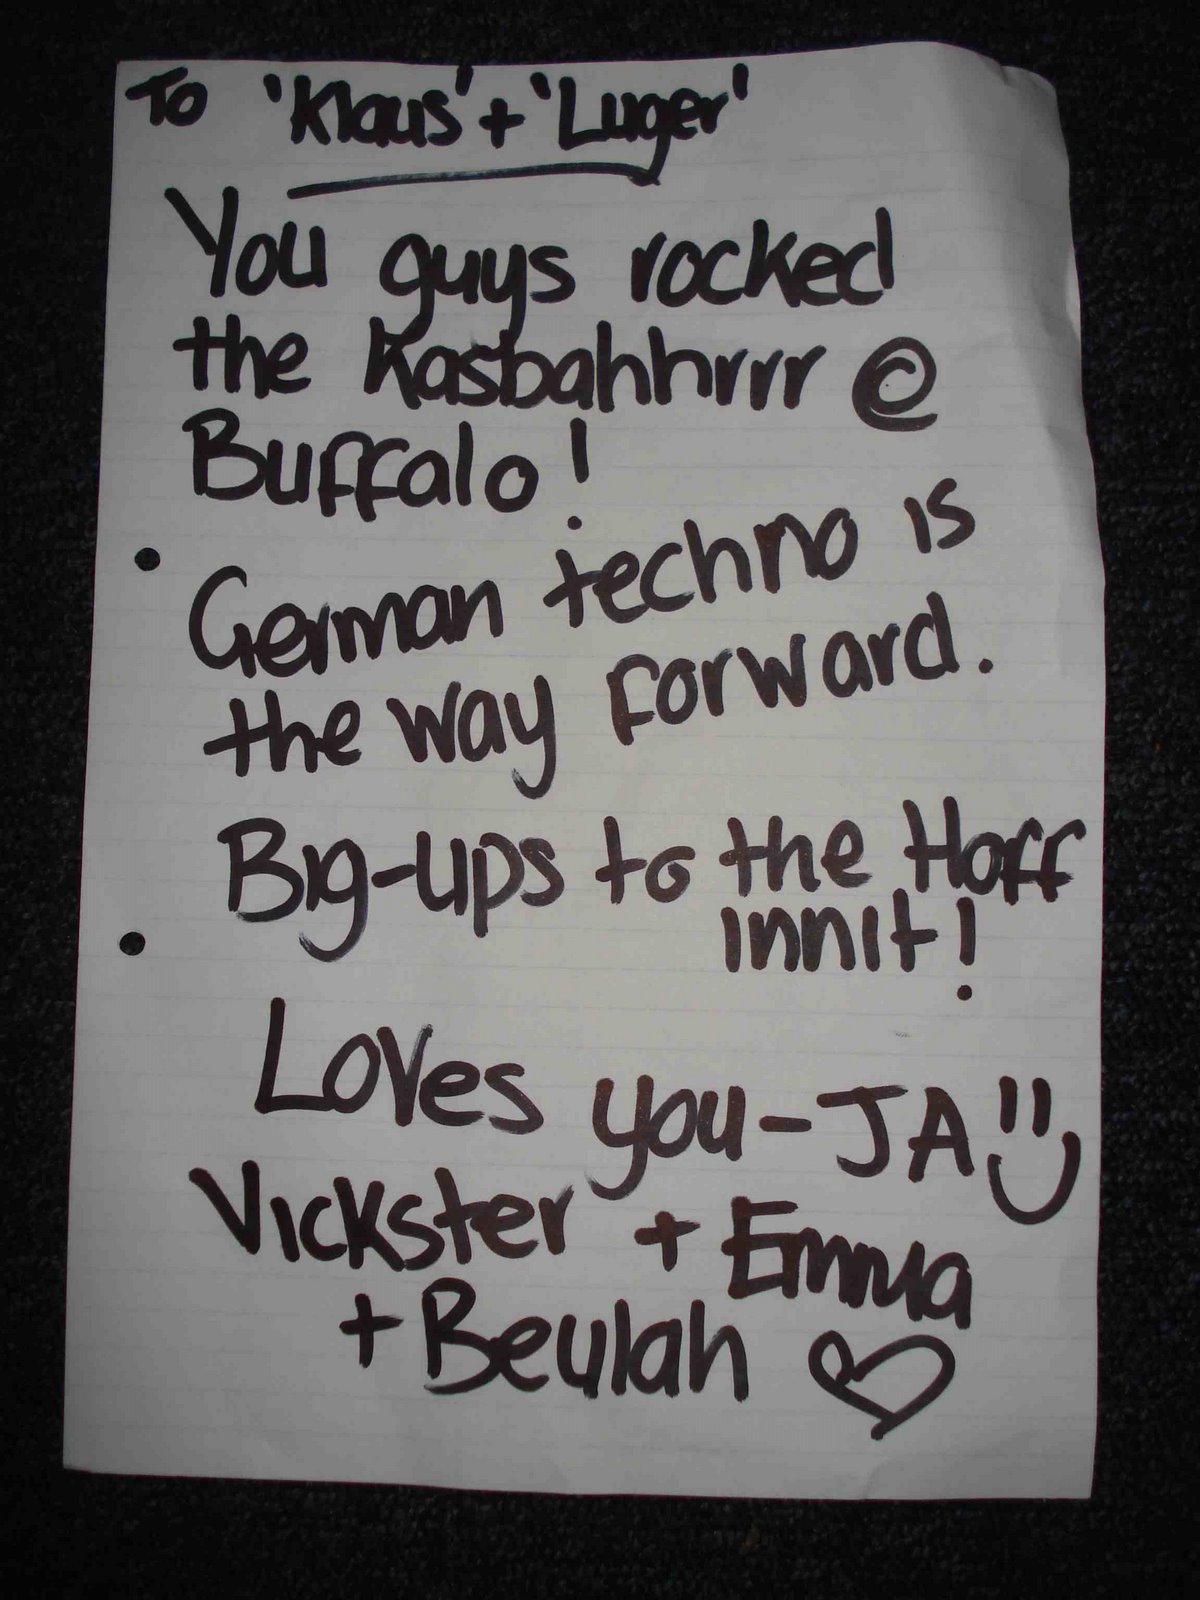 To 'Klaus' + 'Luger'
You guys rocked
the Kasbahhrrr @
Buffalo!
German techno is
the way forward.
Big-ups to the Hoff
innit!
Loves you - JA
Vickster + Emma
+ Beulah